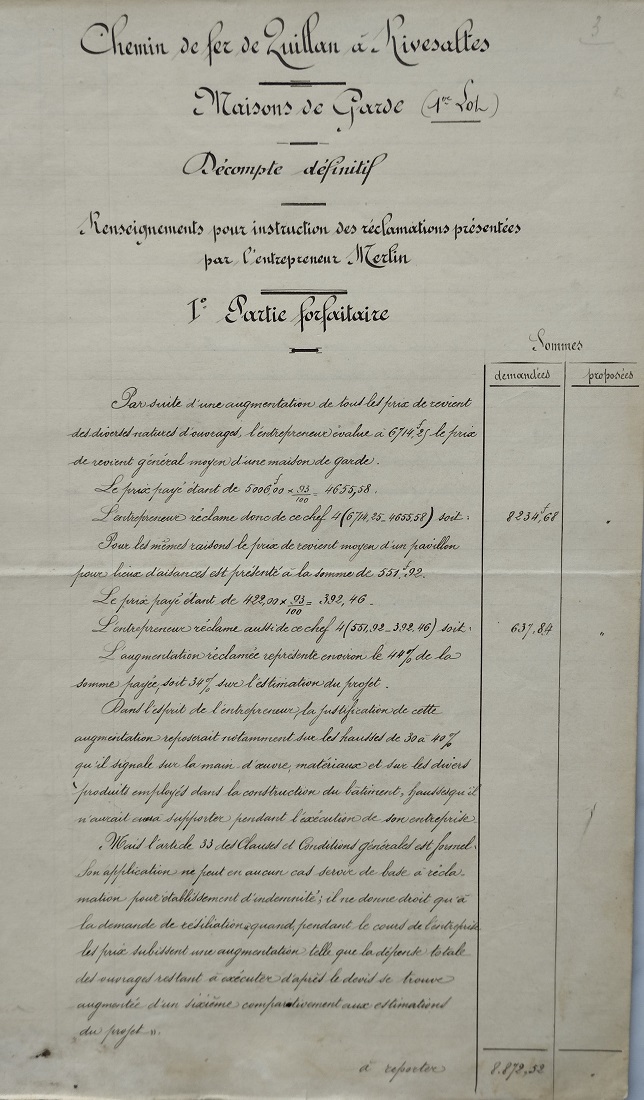 3
Chemin de fer de Quillan à Rivesaltes
Maisons de Garde (1er Lot)
Décompte définitif
Renseignements pour instruction des réclamations présentées
par l'entrepreneur Merlin
I° Partie forfaitaire
Sommes
demandées proposées
Par suite d'une augmentation de tous les prix de revient
des diverses natures d'ouvrages, l'entrepreneur évalue à 6714,f25 le prix
de revient général moyen d'une maison de garde.
Le prix payé étant de 5006,f00 × 93/100 = 4655,58.
L'entrepreneur réclame donc de ce chef 4(6714,25_4655,58) soit: 8234,f68 "
Pour les mêmes raisons le prix de revient moyen d'un pavillon
pour lieux d'aisances est présenté à la somme de 551,f92.
Le prix payé étant de 422,00 × 93/100 = 392,46.
L'entrepreneur réclame aussi de ce chef 4(551,92_392,46) soit: 637,84 "
L'augmentation réclamée représente environ le 44% de la
somme payée, soit 34% sur l'estimation du projet.
Dans l'esprit de l'entrepreneur, la justification de cette
augmentation reposerait notamment sur les hausses de 30 à 40%
qu'il signale sur la main d'œuvre, matériaux et sur les divers
produits employés dans la construction du bâtiment, hausses qu'il
n'aurait eu à supporter pendant l'exécution de son entreprise
"Mais l'article 33 des Clauses et Conditions générales est formel.
Son application ne peut en aucun cas servir de base à récla-
mation pour établissement d'indemnité; il ne donne droit qu'à
la demande de résiliation "quand, pendant le cours de l'entreprise
les prix subissent une augmentation telle que la dépense totale
des ouvrages restant à exécuter d'après le devis se trouve
augmentée d'un sixième comparativement aux estimations
du projet".
à reporter 8.872,52